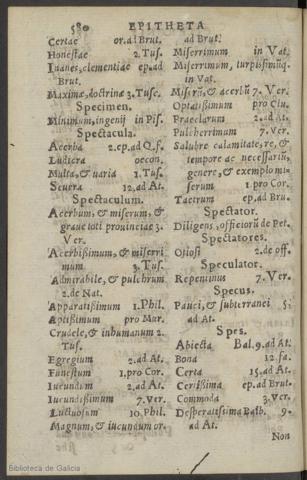 580 EPITHETA
Certae or. al Brut.
Honestae 2. Tus.
Inanes, clementiae ep. ad
Brut.
Maximae, doctrinae 3. Tusc.
Specimen.
Minimum, ingenij in Pis.
Spectacula.
Acerba 2. ep. ad Q. f.
Ludicra oecon.
Multa, & uaria 1. Tus.
Seuera 12. ad At.
Spectaculum.
Acerbum, & miserum, &
graue toti prouinciae 3.
Ver.
Acerbißimum, & miserri
mum 3. Tus.
Admirabile, & pulchrum
2. de Nat.
Apparatißimum 1. Phil.
Aptißimum pro Mur.
Crudele, & inhumanum 2.
Tus.
Egregium 2. ad At.
Funestum 1. pro Cor.
Iucundum 2. ad At.
Iucundißimum 7. Ver.
Luctuosum 10. Phil.
Magnum, & iucundum or.
ad Brut.
Miserrimum in Vat.
Miserrimum, turpißimūq.
in Vat.
Miserū, & acerbū 7. Ver.
Optatißimum pro Clu.
Praeclarum 2. ad At.
Pulcherrimum 7. Ver.
Salubre calamitate, re, &
tempore ac necessariū,
genere, & exemplo mi-
serum 1. pro Cor.
Taetrum ep. ad Bru.
Spectator.
Diligens, officiorū de Pet.
Spectatores.
Otiosi 2. de off.
Speculator.
Repentinus 7. Ver.
Specus.
Pauci, & subterranei 5.
ad At.
Spes.
Abiecta Bal. 9. ad At.
Bona 12. fa.
Certa 15. ad At.
Certißima ep. ad Brut.
Commoda 3. Ver.
Desperatißima Balb. 9.
ad At.
Non
Biblioteca de Galicia